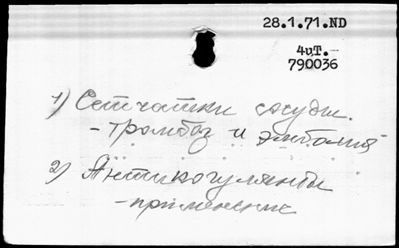 28.1.71.ND
4ит.-
790036
1) Сетчатки сосуды.
- тромбоз и эмболия
2) Антикогулянты
- применение